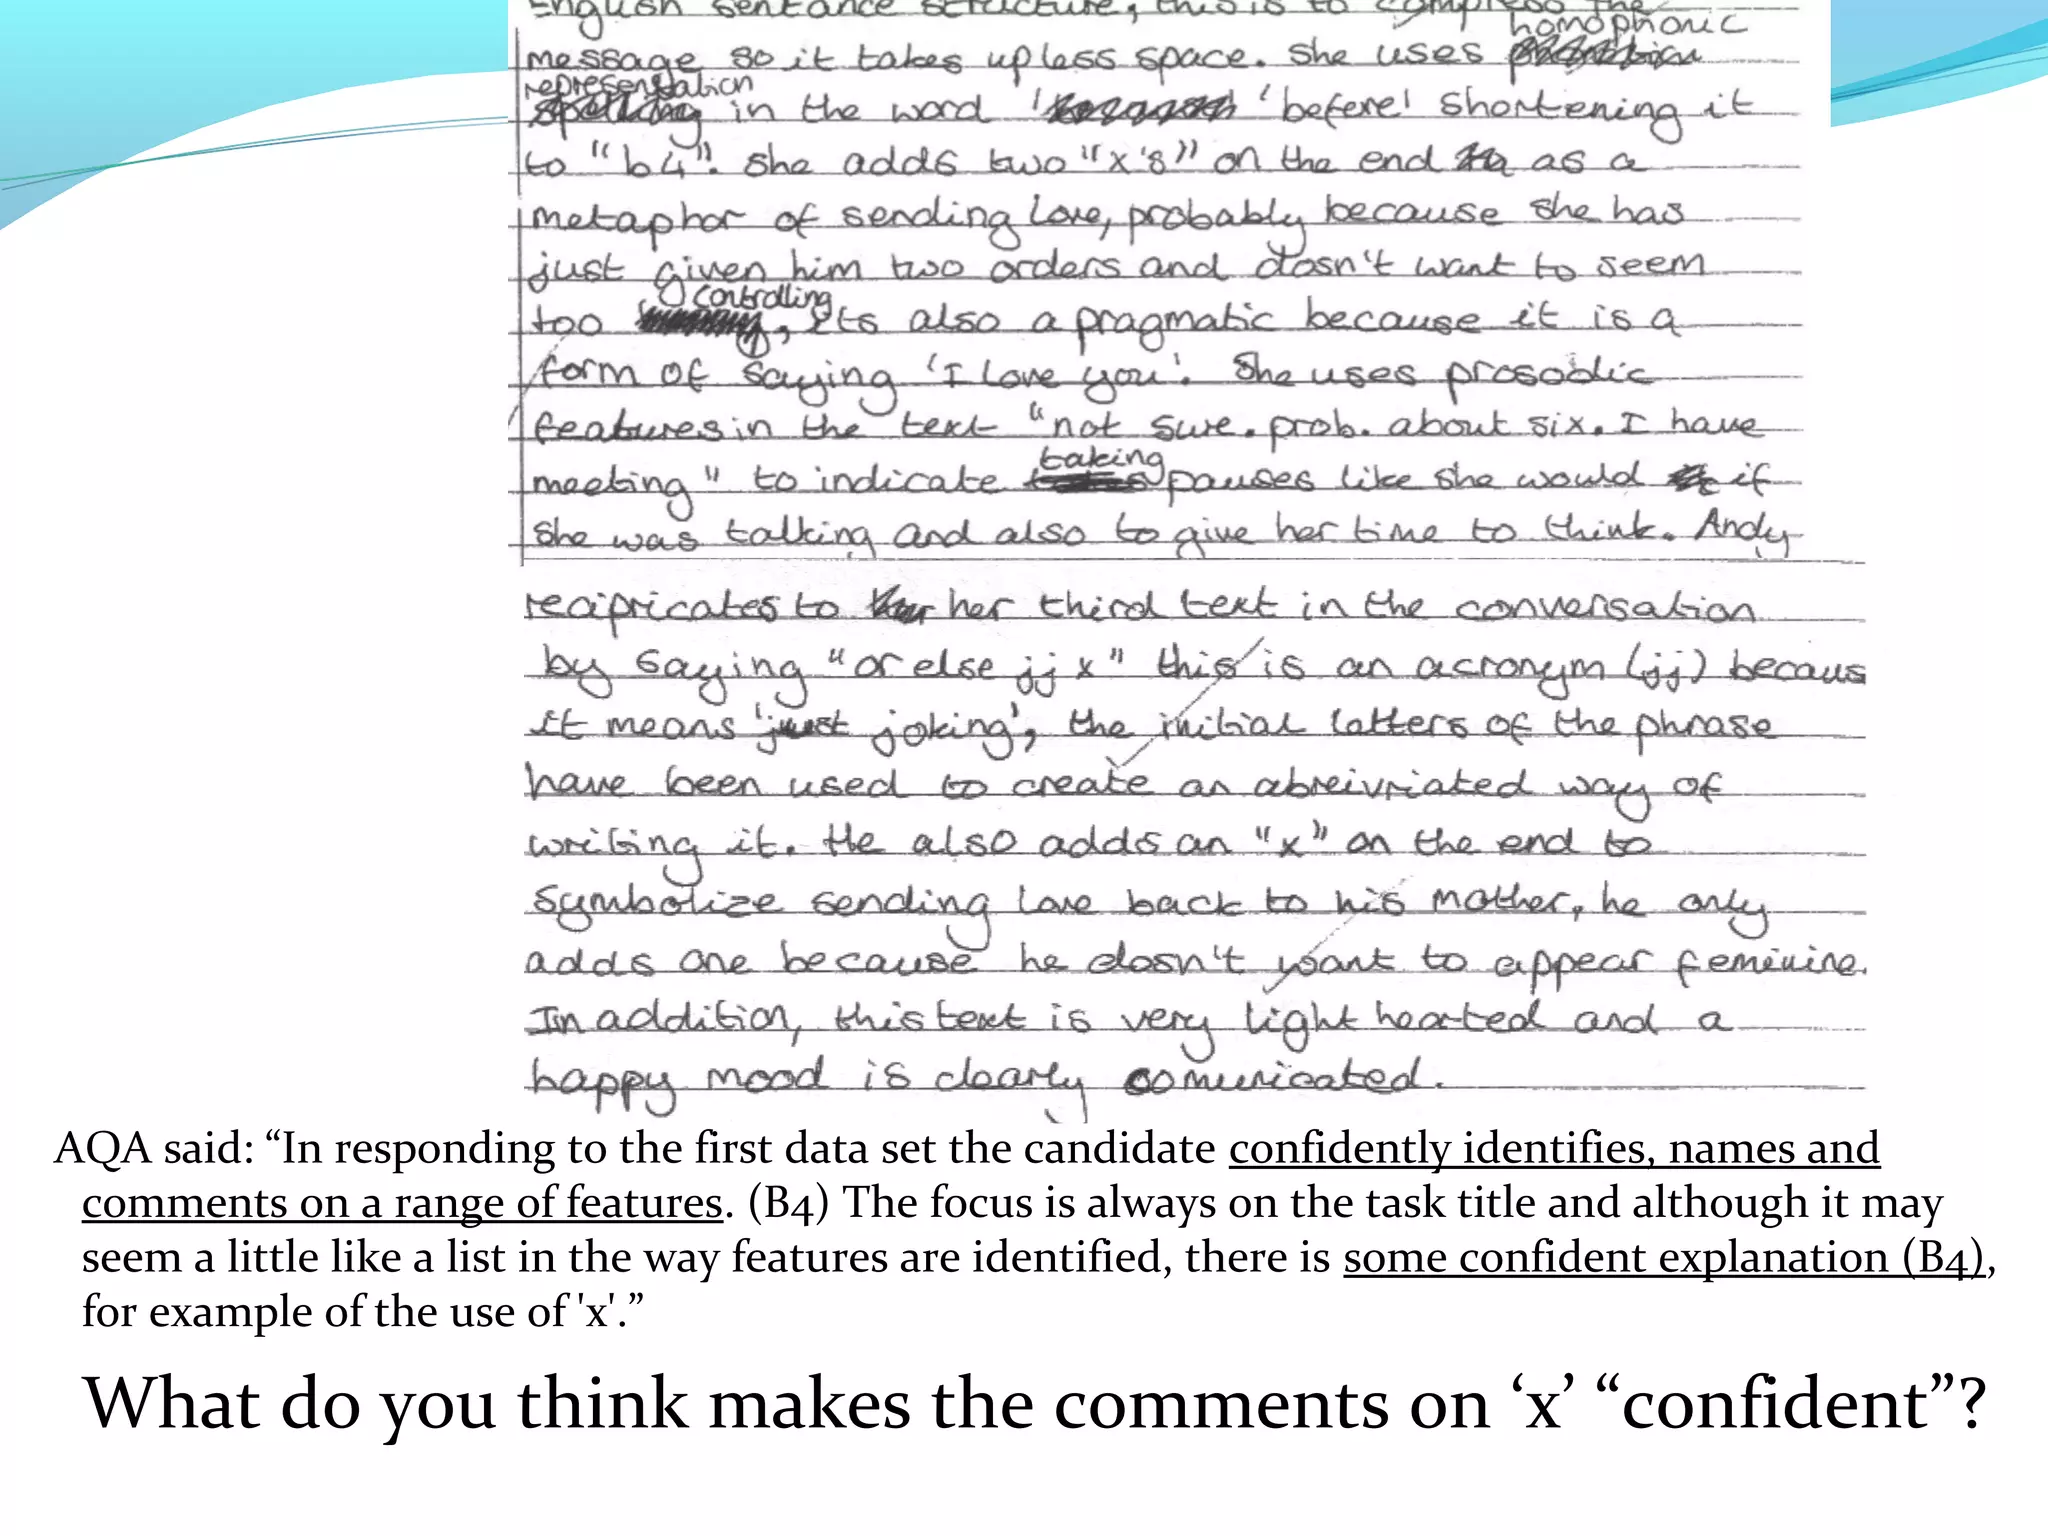 English sentance structure, this is to compress the
homophonic
message so it takes up less space. She uses
representation
spelling in the word ' 'before' shortening it
to "b4". She adds two "x's" on the end as a
metaphor of sending love, probably because she has
just given him two orders and dosn't want to seem
controlling
too , its also a pragmatic because it is a
form of saying 'I love you'. She uses prosodic
features in the text "not sure. prob. about six. I have
taking
meeting" to indicate pauses like she would if
she was talking and also to give her time to think. Andy
recipricates to her third text in the conversation
by saying "or else jj x" this is an acronym (jj) becaus
it means 'just joking', the initial letters of the phrase
have been used to create an abreivriated way of
writing it. He also adds an "x" on the end to
symbolize sending love back to his mother, he only
adds one because he dosn't want to appear feminine.
In addition, this text is very light hearted and a
happy mood is clearly comunicated.
AQA said: “In responding to the first data set the candidate confidently identifies, names and
comments on a range of features. (B4) The focus is always on the task title and although it may
seem a little like a list in the way features are identified, there is some confident explanation (B4),
for example of the use of 'x'.”
What do you think makes the comments on ‘x’ “confident”?